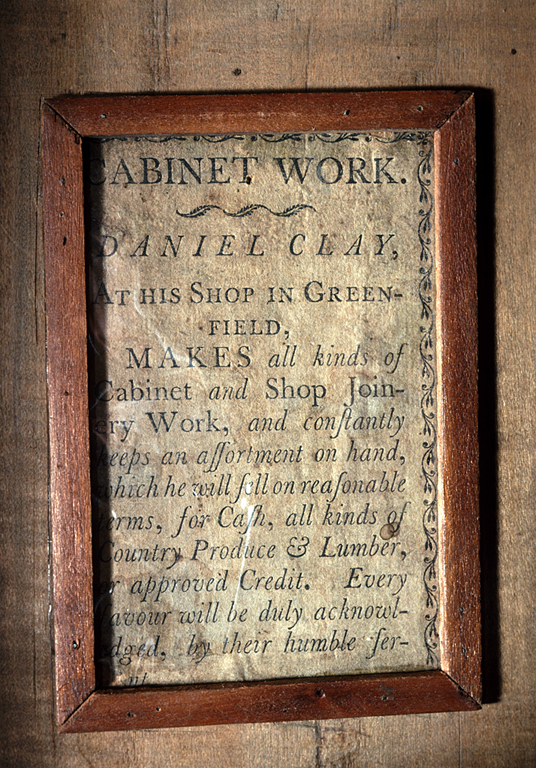 CABINET WORK.
DANIEL CLAY,
AT HIS SHOP IN GREEN-
FIELD,
MAKES all kinds of
Cabinet and Shop Join-
ery Work, and conſtantly
keeps an aſſortment on hand,
which he will ſell on reaſonable
terms, for Caſh, all kinds of
Country Produce & Lumber,
or approved Credit. Every
favour will be duly acknowl-
edged, by their humble ſer-